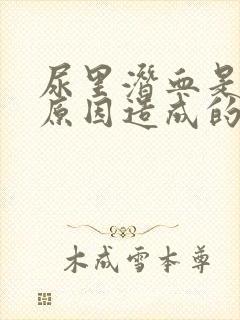 尿里潜血是
原因造成的
木成雪本尊